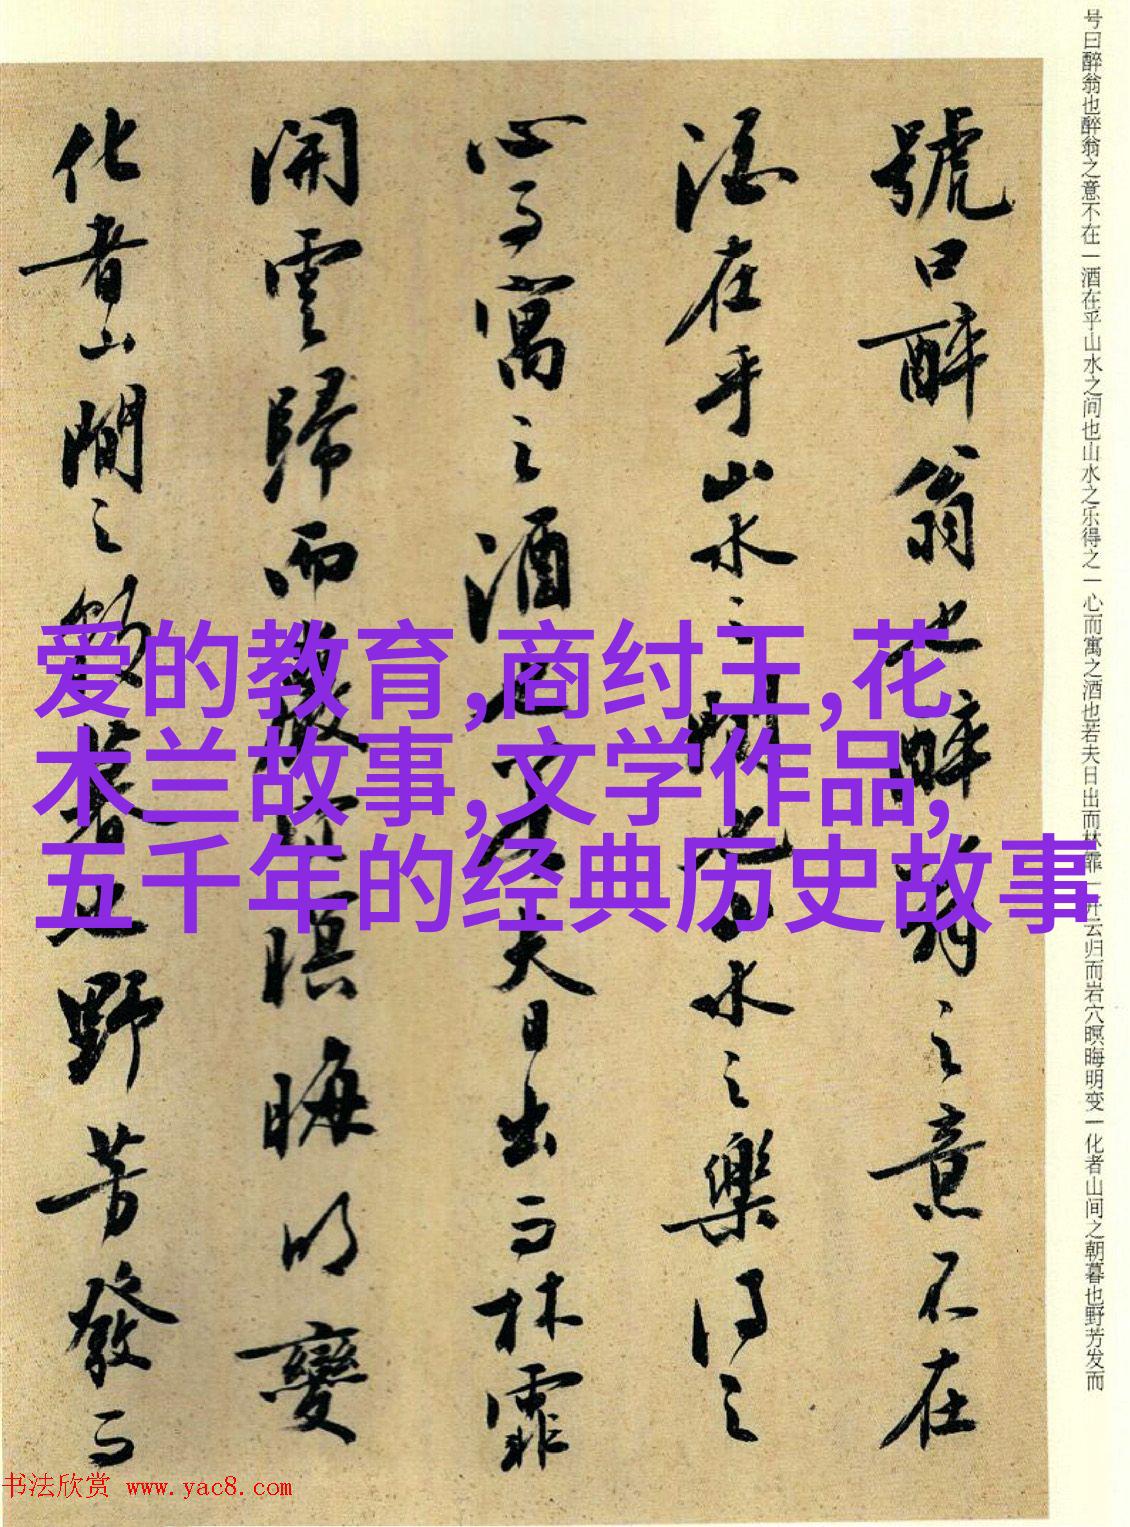 号曰醉翁也醉翁之意不在一酒在乎山水之间也山水之乐得之一心而寓之酒也若夫日出而林霏一开云归而岩穴暝晦明变一化者山间之朝暮也野芳发而
號曰醉翁也醉翁之意不在
酒在乎山水之間也山水之樂得之
心而寓之酒也若夫日出而林霏
開雲歸而巖穴暝晦明變
化者山間之朝暮也野芳發而
爱的教育,商纣王,花
木兰故事,文学作品,
五千年的经典历史故事
书法欣赏 www.yac8.com